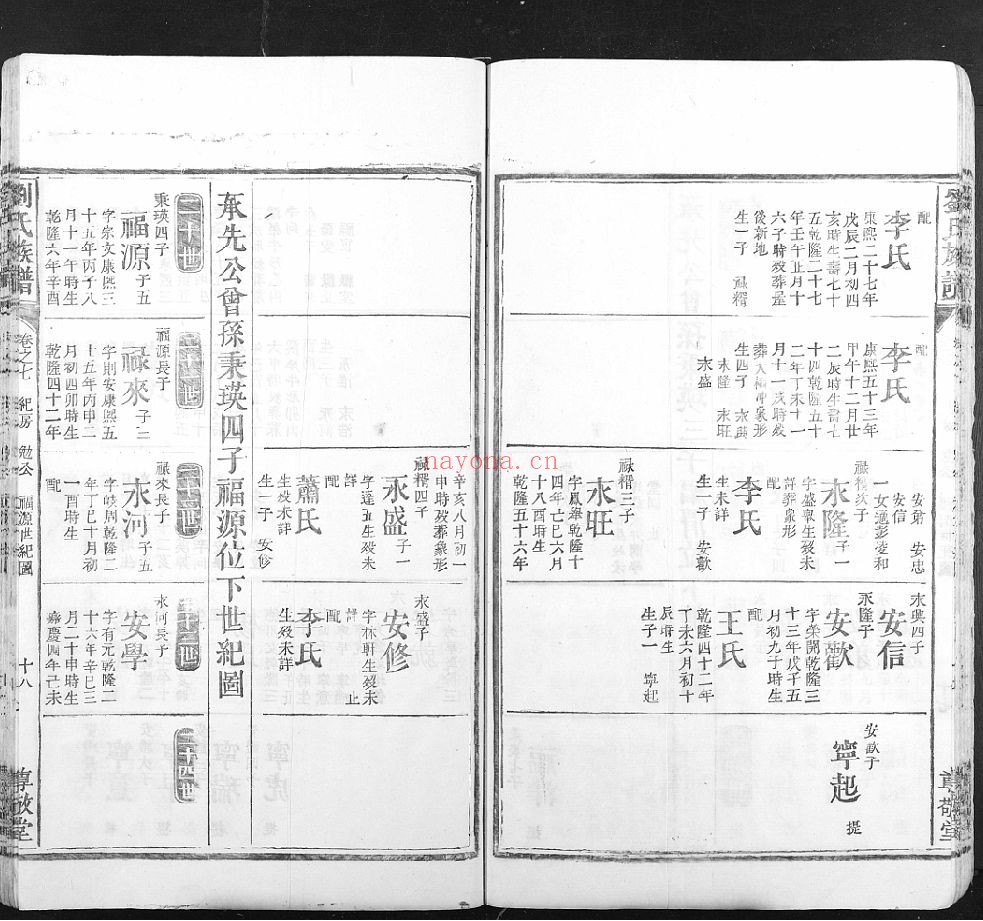 配
李氏
康熙二十七年
戊辰二月初四
亥時生壽七十
五乾隆二十七
年壬午正月十
六子時歿葬屋
後新地
生一子 祿糈
配
李氏
康熙五十三年
甲午十二月廿
二辰時生壽七
十四乾隆五十
二年丁未十一
月十一戌時歿
生四子 永興
永隆 永旺
永盛
安弟 安忠
安信
一女適彭凌和
祿糈次子
永隆 子一
字盛舉生歿未
詳葬象形
配
李氏
生未詳
生一子 安歡
祿糈三子
永旺
字鳳舉乾隆十
四年己巳六月
十八酉時生
乾隆五十六年
永興四子
安信
永隆子
安歡
字榮開乾隆三
十三年戊子五
月初九子時生
配
王氏
乾隆四十二年
丁未六月初十
辰時生
生子一 寧起
安歡子
寧起
提
辛亥八月初一
申時歿葬象形
祿糈四子
永盛 子一
字達五生歿未
詳
配
蕭氏
生歿未詳
生一子 安修
永盛子
安修
字林軒生歿未
詳 止
配
李氏
生歿未詳
承先公曾孫秉瑛四子福源位下世紀圖
二十世
秉瑛四子
福源 子五
字宗文康熙三
十五年丙子八
月十一午時生
乾隆六年辛酉
福源長子
祿來 子三
字則安康熙五
十五年丙申二
月初四卯時生
乾隆四十二年
祿來長子
永河 子五
字岐周乾隆二
年丁巳十月初
一酉時生
配
永河長子
安學
字有元乾隆二
十六年辛巳三
月二十申時生
嘉慶四年己未
二十四世
劉氏族譜
卷之七 紀房 勉公 福源世紀圖
十八
尊敬堂
nayona.cn